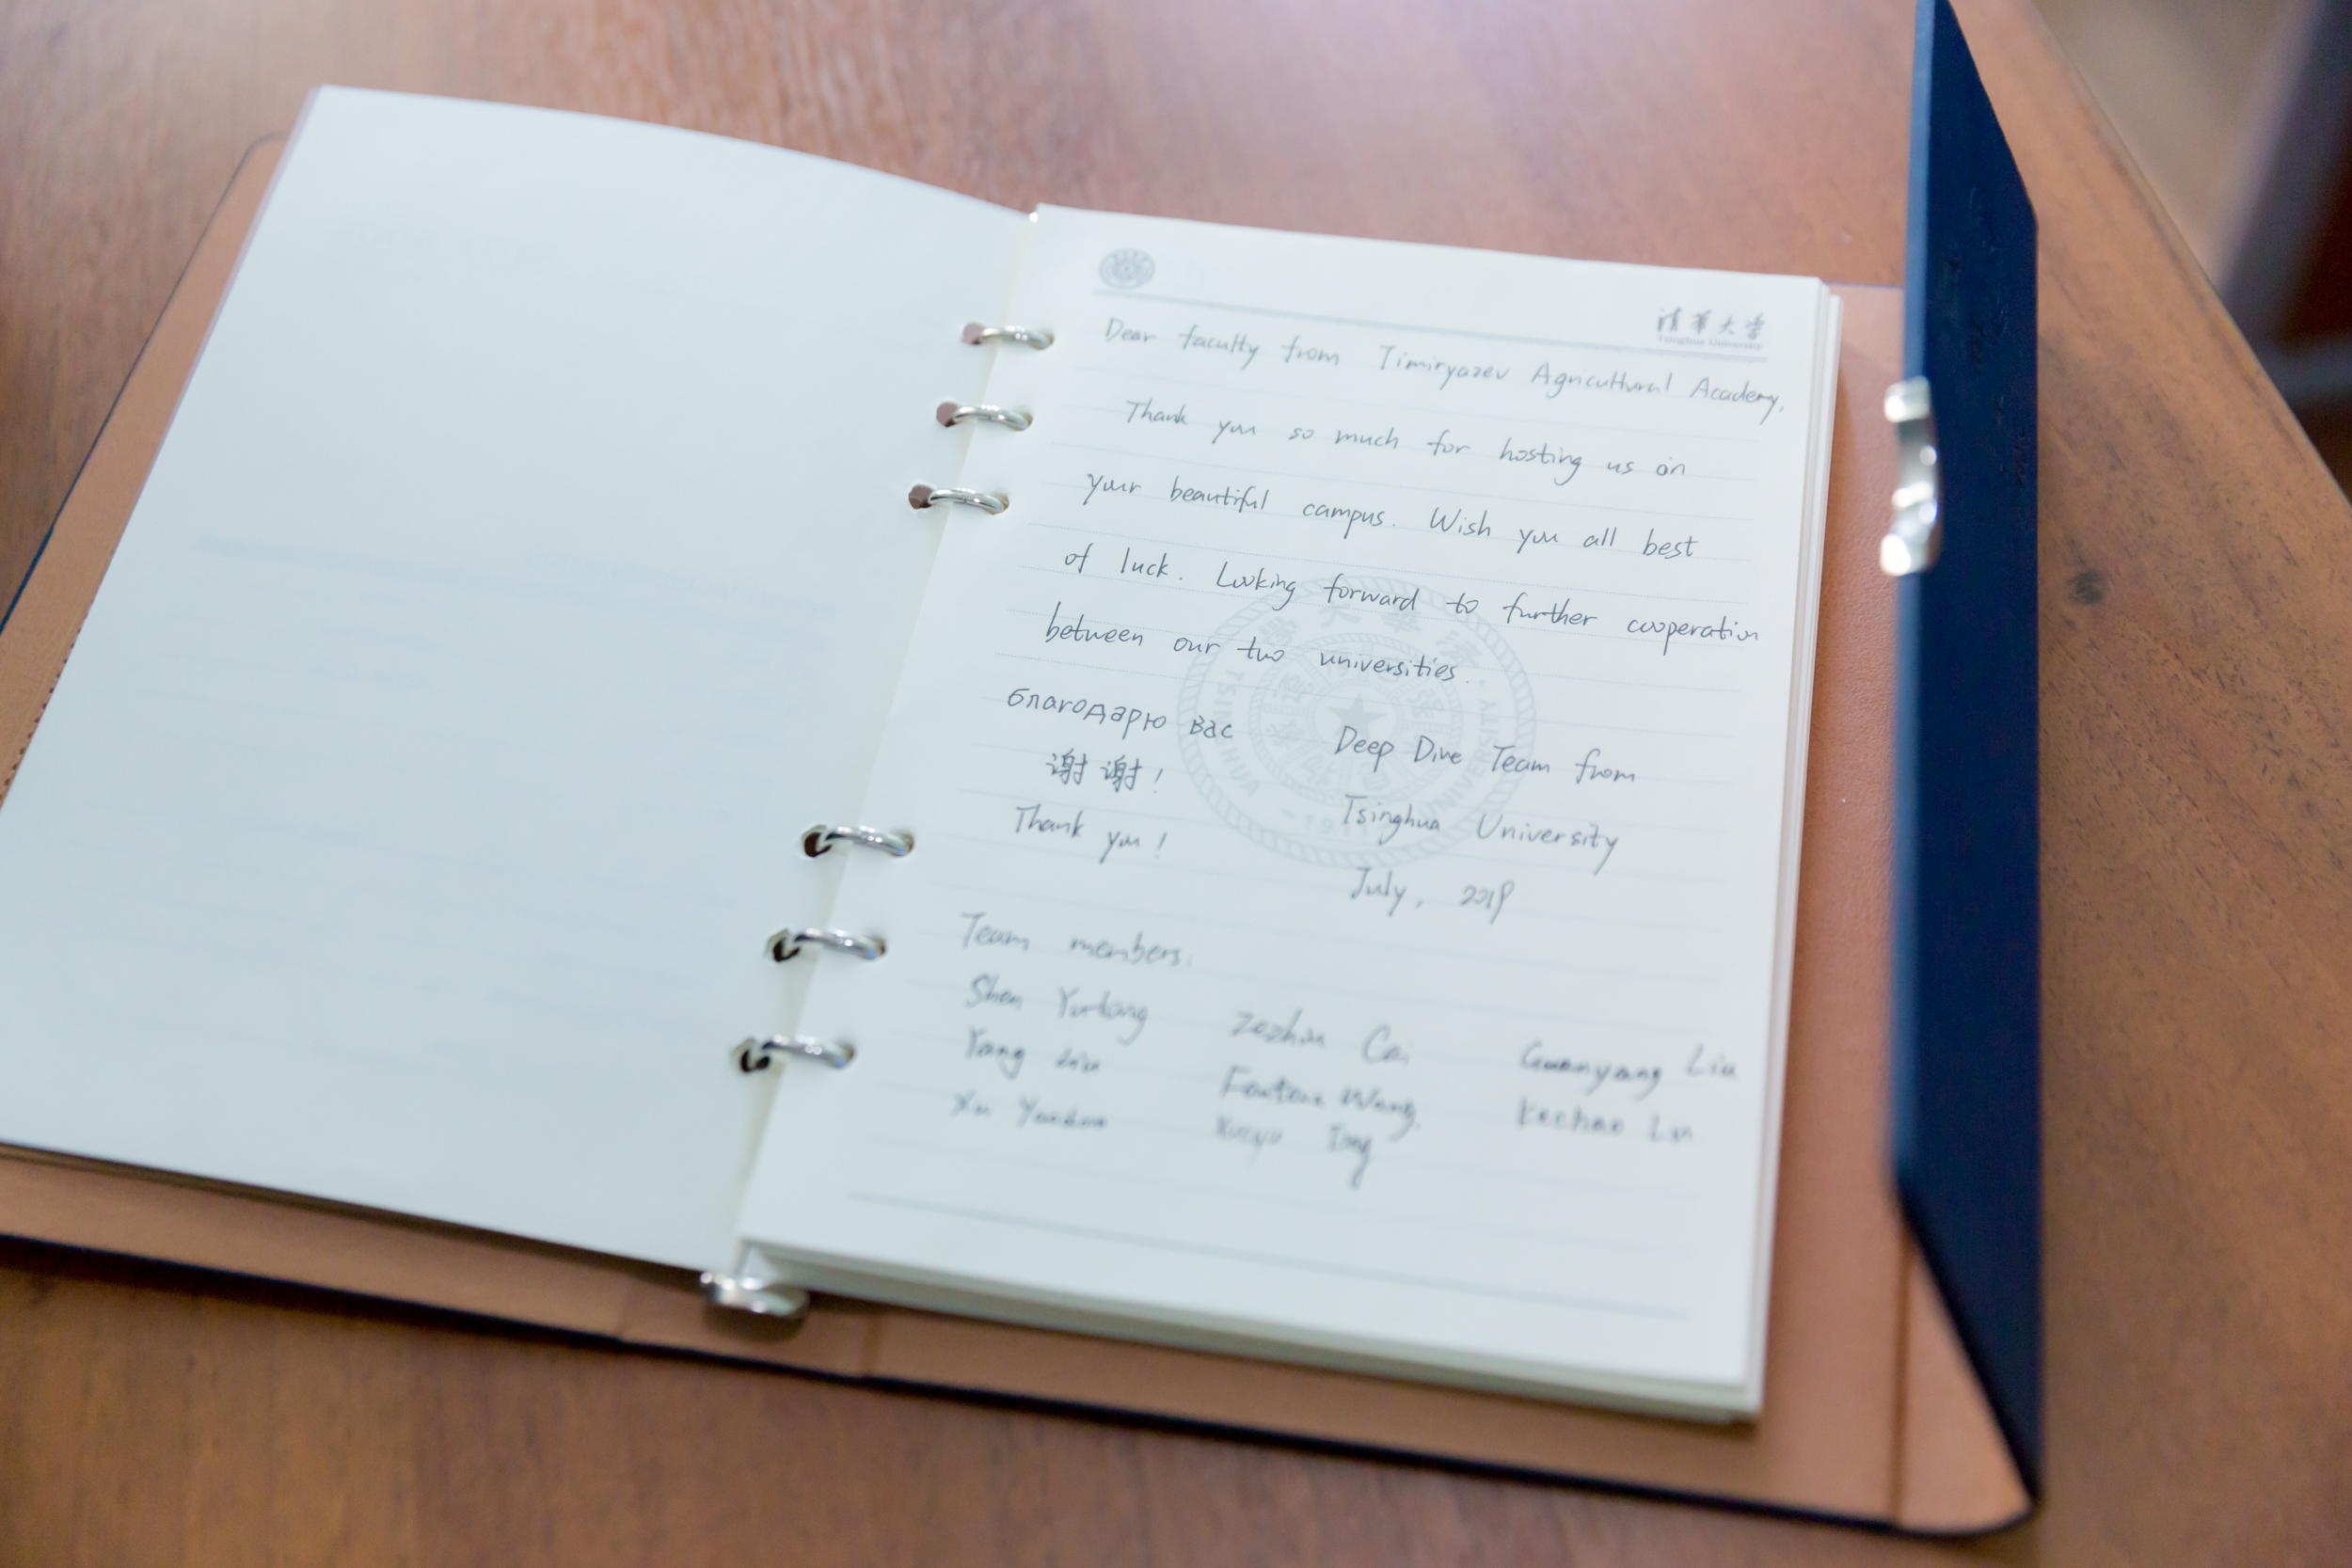 清华大学
Tsinghua University
Dear faculty from Timiryazev Agricultural Academy,
Thank you so much for hosting us on
your beautiful campus. Wish you all best
of luck. Looking forward to further cooperation
between our two universities.
благодарю вас
谢谢!
Thank you!
Deep Dive Team from
Tsinghua University
July, 2019
TSINGHUA UNIVERSITY
Team members:
Shen Zezhou Cai Guanyang Liu
Yang Wang, Kechao Lu
Xu Xueyu Tong